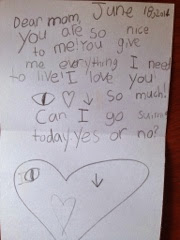 Dear mom, June
You are so nice
to me! You give
me everything I need
to live! I love you!
so much!
Can I go
today yes or no?